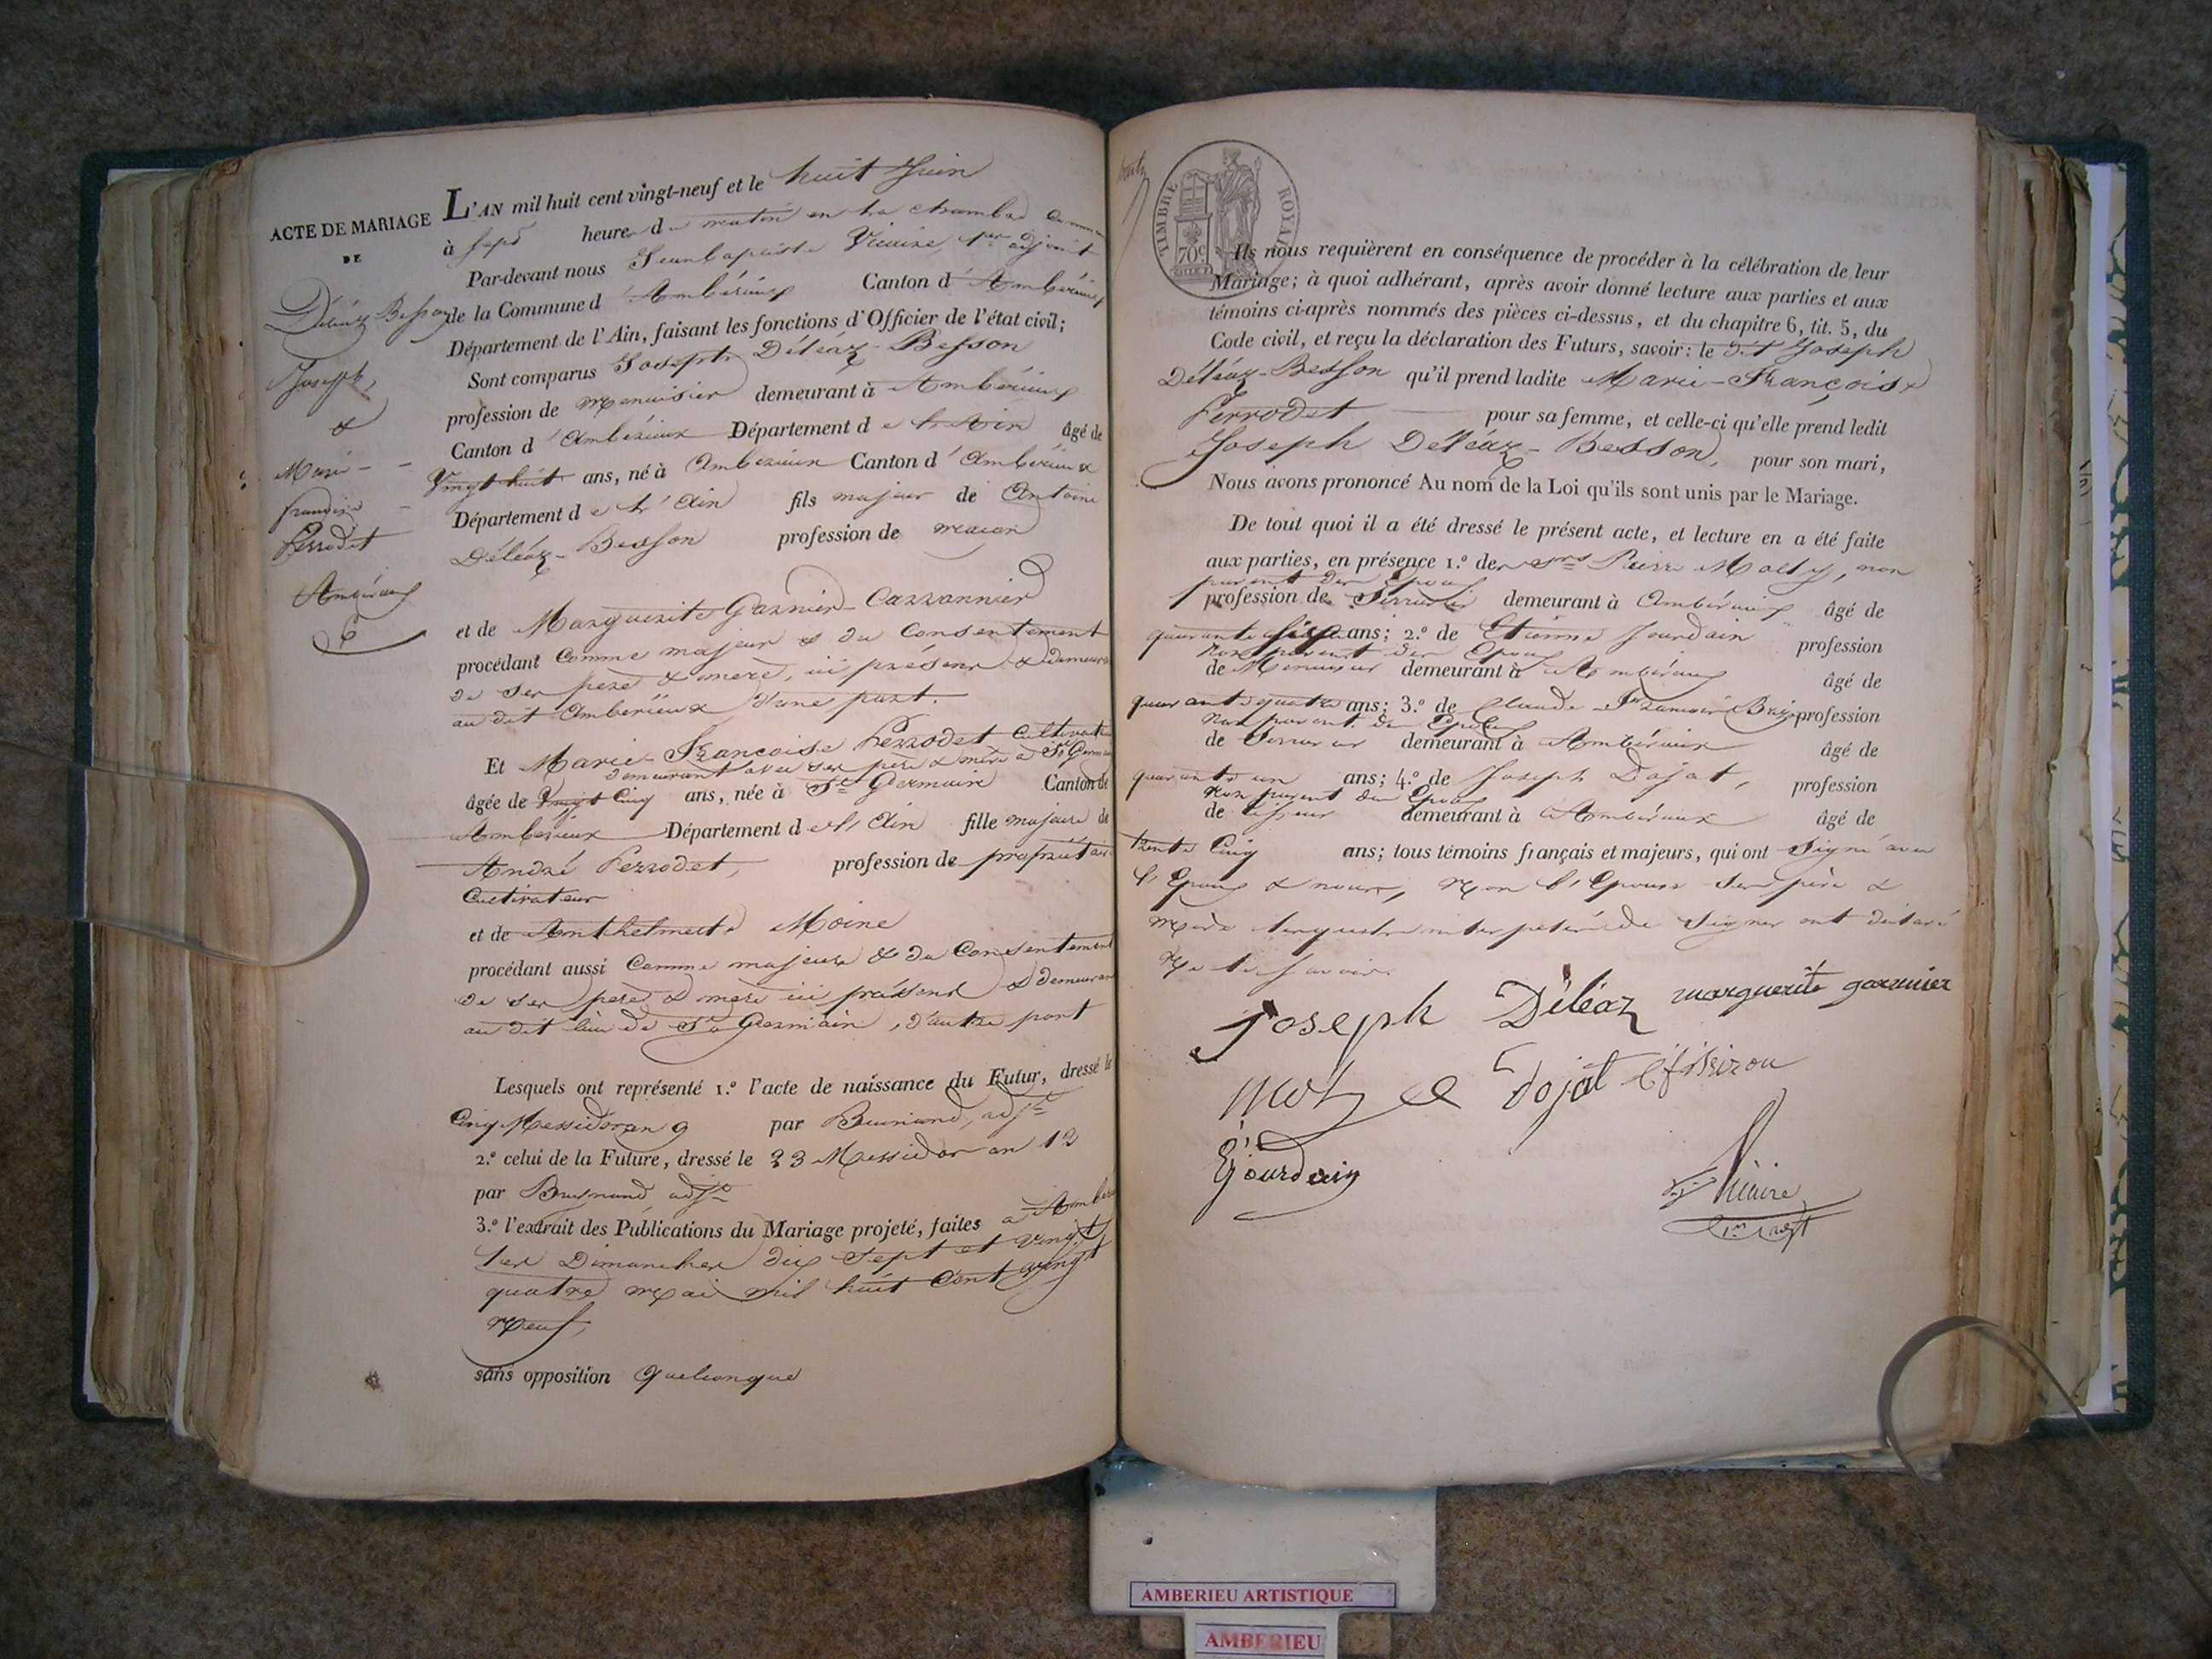 ACTE DE MARIAGE
DE
Déléaz Besson
Joseph,
&
Marie-
françoise
Perrodet
Ambérieux
L'AN mil huit cent vingt-neuf et le huit Juin
à sept heures du matin en la chambre commune
Par-devant nous Jean baptiste Vicaire, 1er adjoint
de la Commune d'Ambérieux Canton d'Ambérieux
Département de l'Ain, faisant les fonctions d'Officier de l'état civil;
Sont comparus Joseph Déléaz-Besson
profession de menuisier demeurant à Ambérieux
Canton d'Ambérieux Département de l'Ain âgé de
Vingt huit ans, né à Ambérieux Canton d'Ambérieux
Département de l'Ain fils majeur de Antoine
Déléaz-Besson profession de maçon
et de Marguerite Garnier-Carronnier
procédant Comme majeur & du Consentement
de ses père & mère, ici présens & demeurant
au dit Ambérieux d'une part.
Et Marie-Françoise Perrodet Cultivatrice
demeurant avec ses père & mère à St Germain
âgée de Vingt Cinq ans, née à St Germain Canton de
Ambérieux Département de l'Ain fille majeure de
André Perrodet, profession de propriétaire
Cultivateur
et de Anthelmette Moine
procédant aussi Comme majeure & du Consentement
de ses père & mère ici présens & demeurant
au dit lieu de St Germain, d'autre part
Lesquels ont représenté 1.º l'acte de naissance du Futur, dressé le
Cinq Messidor an 9 par adjt
2.º celui de la Future, dressé le 23 Messidor an 12
par adjt
3.º l'extrait des Publications du Mariage projeté, faites à
les Dimanches dix sept et vingt
quatre mai mil huit Cent vingt
neuf,
sans opposition quelconque
TIMBRE ROYAL
70c
Ils nous requièrent en conséquence de procéder à la célébration de leur
Mariage; à quoi adhérant, après avoir donné lecture aux parties et aux
témoins ci-après nommés des pièces ci-dessus, et du chapitre 6, tit. 5, du
Code civil, et reçu la déclaration des Futurs, savoir: le dit Joseph
Déléaz-Besson qu'il prend ladite Marie-Françoise
Perrodet pour sa femme, et celle-ci qu'elle prend ledit
Joseph Déléaz-Besson, pour son mari,
Nous avons prononcé Au nom de la Loi qu'ils sont unis par le Mariage.
De tout quoi il a été dressé le présent acte, et lecture en a été faite
aux parties, en présence 1.º de Pierre, non
parent des Epoux
profession de Serrurier demeurant à Ambérieux âgé de
quarante ans; 2.º de Etienne Jourdain profession
Non parent des Epoux
de Menuisier demeurant à Ambérieux âgé de
quarante quatre ans; 3.º de Claude François profession
Non parent des Epoux
de Serrurier demeurant à Ambérieux âgé de
quarante un ans; 4.º de Joseph Dojat, profession
Non parent des Epoux
de tisseur demeurant à Ambérieux âgé de
trente Cinq ans; tous témoins français et majeurs, qui ont Signé avec
l'Epoux & nous, non l'Epouse Ses père &
mère lesquels interpelés de Signer ont déclaré
Ne le Savoir.
Joseph Déléaz marguerite garnier
Dojat
Jourdain
Vicaire
AMBERIEU ARTISTIQUE
AMBERIEU